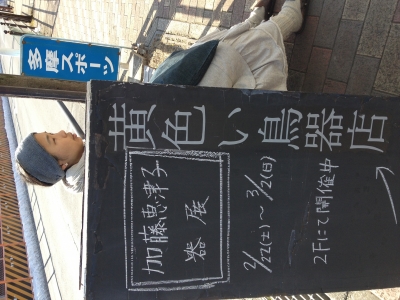 多摩スポーツ
黄色い鳥器店
加藤恵津子
器展
2/22(土)～3/2(日)
2Fにて開催中